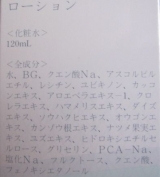 ローション
<化粧水>
120mL
<全成分>
水、BG、クエン酸Na、アスコルビル
エチル、レシチン、ユビキノン、カッコン
エキス、アロエベラエキス-1、クロレ
ラエキス、ハマメリスエキス、ダイズ
エキス、ソウハクヒエキス、オウゴンエ
キス、カンゾウ根エキス、ナツメ果実エ
キス、ユズエキス、ヒドロキシエチルセ
ルロース、グリセリン、PCA-Na、
塩化Na、マルチトース、クエン酸、
フェノキシエタノール